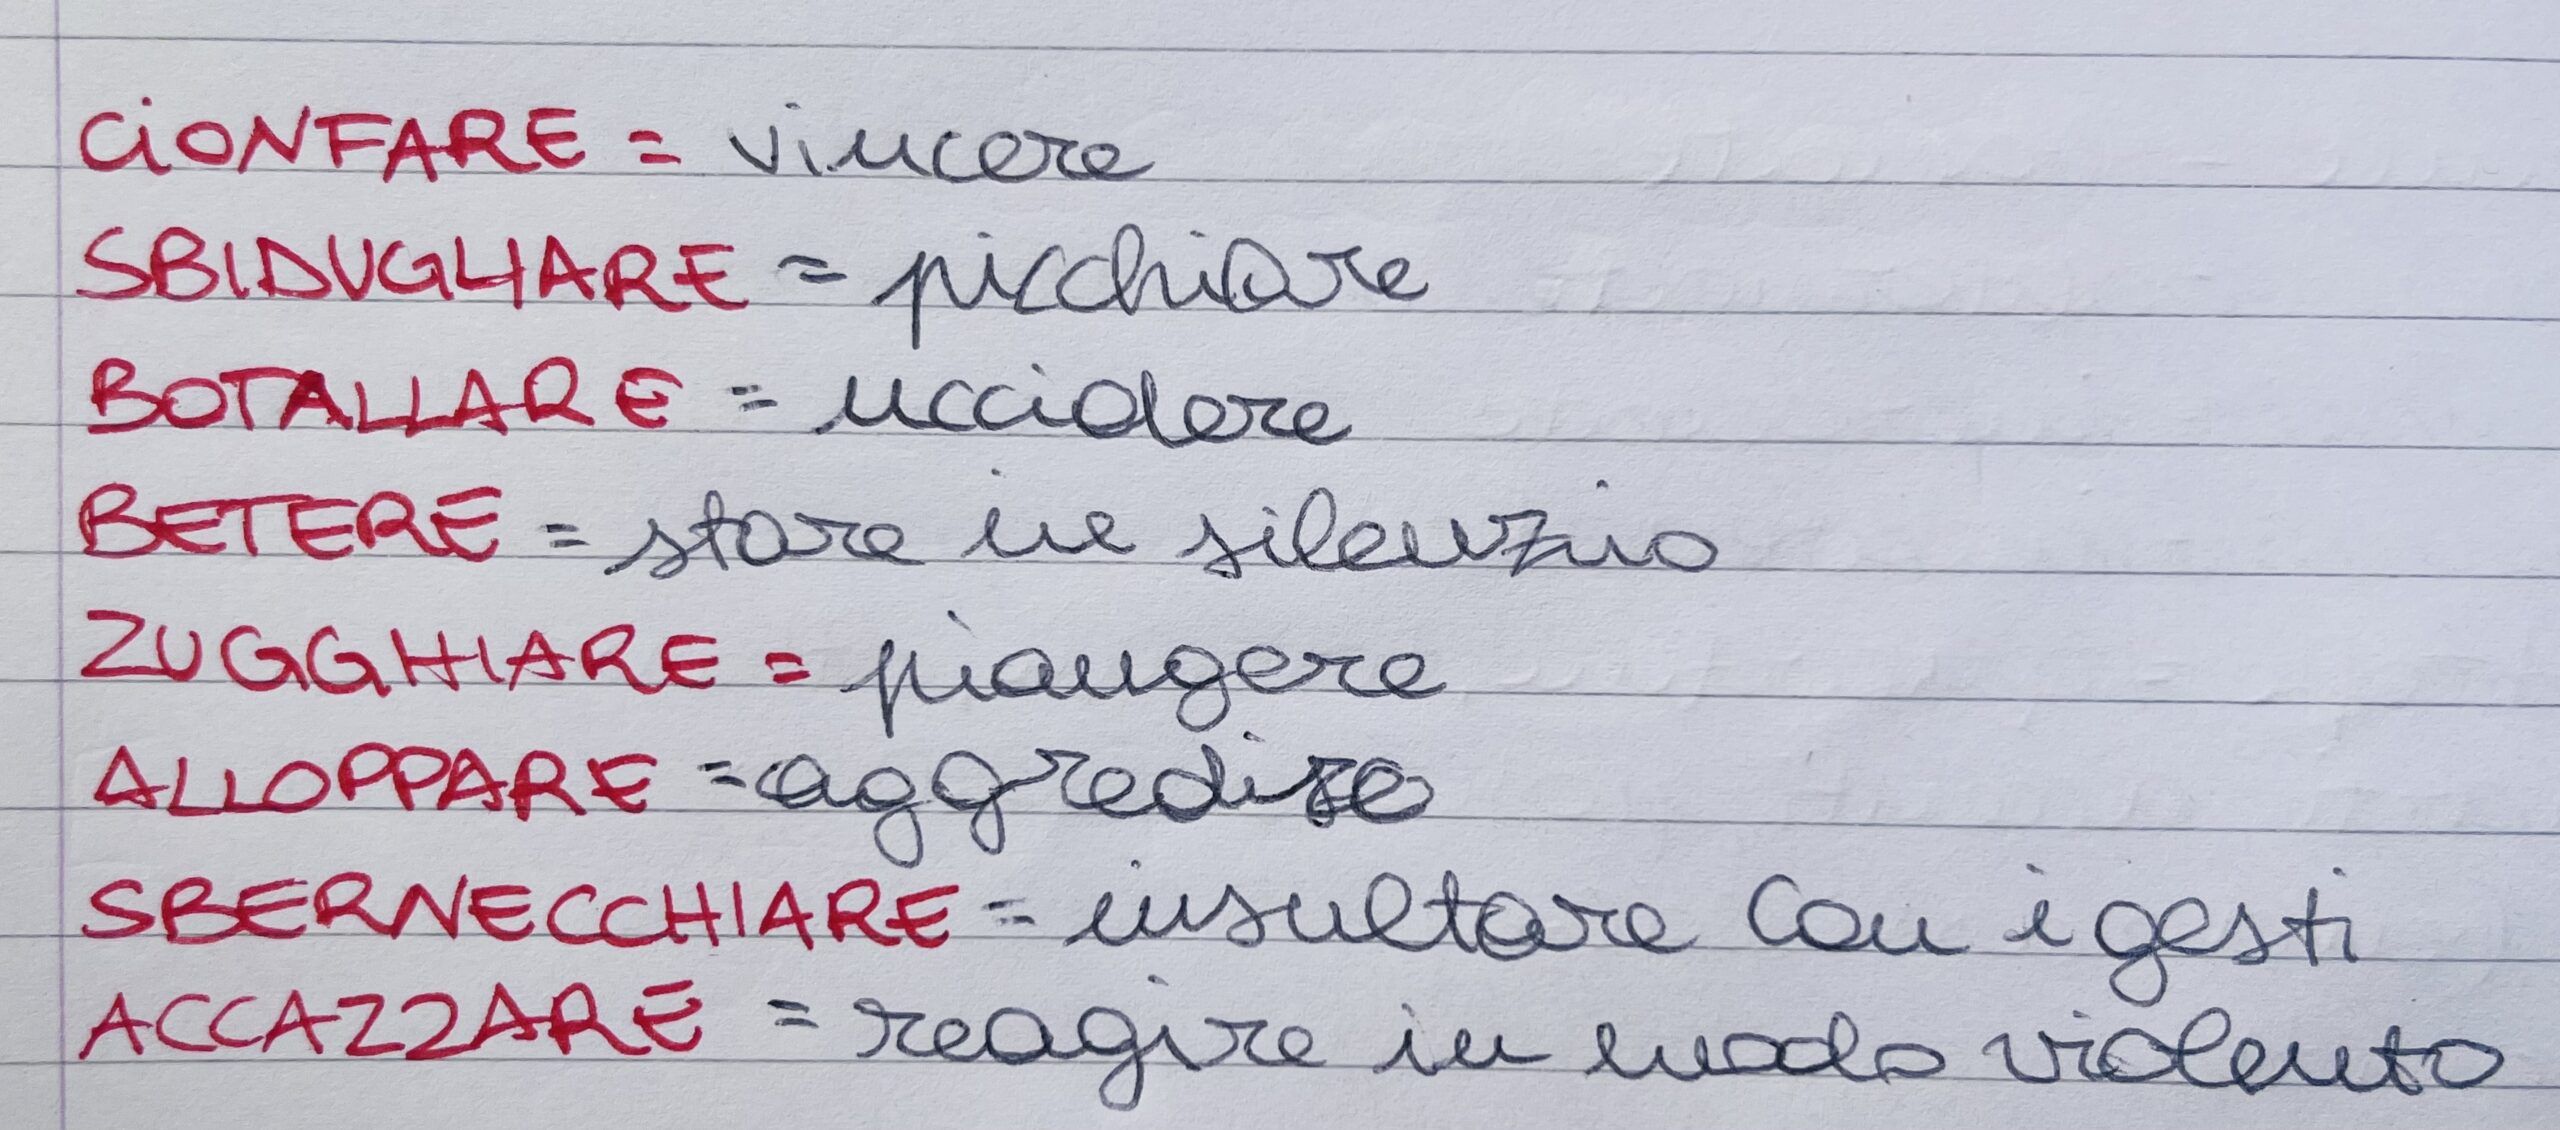 CIONFARE = vincere
SBIDUGLIARE = picchiare
BOTALLARE = uccidere
BETERE = stare in silenzio
ZUGGHIARE = piangere
ALLOPPARE = aggredire
SBERNECCHIARE = insultare con i gesti
ACCAZZARE = reagire in modo violento